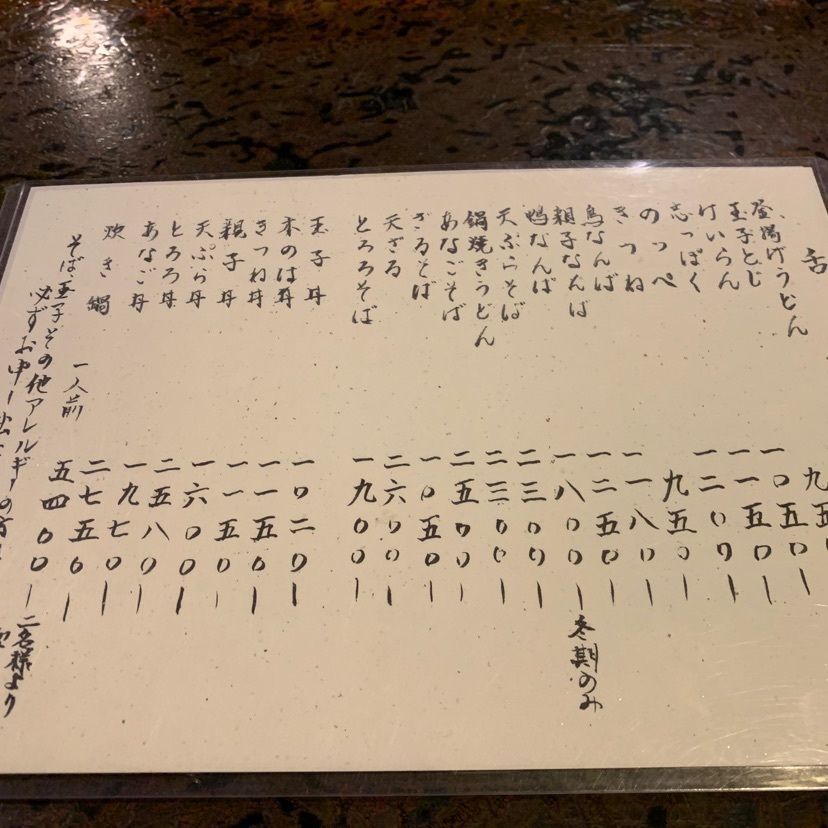 釜揚げうどん
玉子とじ 九五〇
けいらん 一〇五〇
志っぽく 一一五〇ー
のっぺ 一二〇〇ー
きつね 九五〇ー
鳥なんば 一一八〇ー
親子なんば 一二五〇ー
鴨なんば 一八〇〇ー冬期のみ
天ぷらそば 二三〇〇ー
鍋焼きうどん 二三〇〇ー
あなごそば 二五〇〇ー
ざるそば 一〇五〇ー
天ざる 二六〇〇ー
とろろそば 一九〇〇ー
玉子丼 一〇二〇ー
木のは丼 一一五〇ー
きつね丼 一一五〇ー
親子丼 一六〇〇ー
天ぷら丼 二五八〇ー
とろろ丼 一九七〇ー
あなご丼 二七五〇ー
炊き鍋 一人前 五四〇〇ー二名様より
そば玉子その他アレルギーの方は
必ずお申し